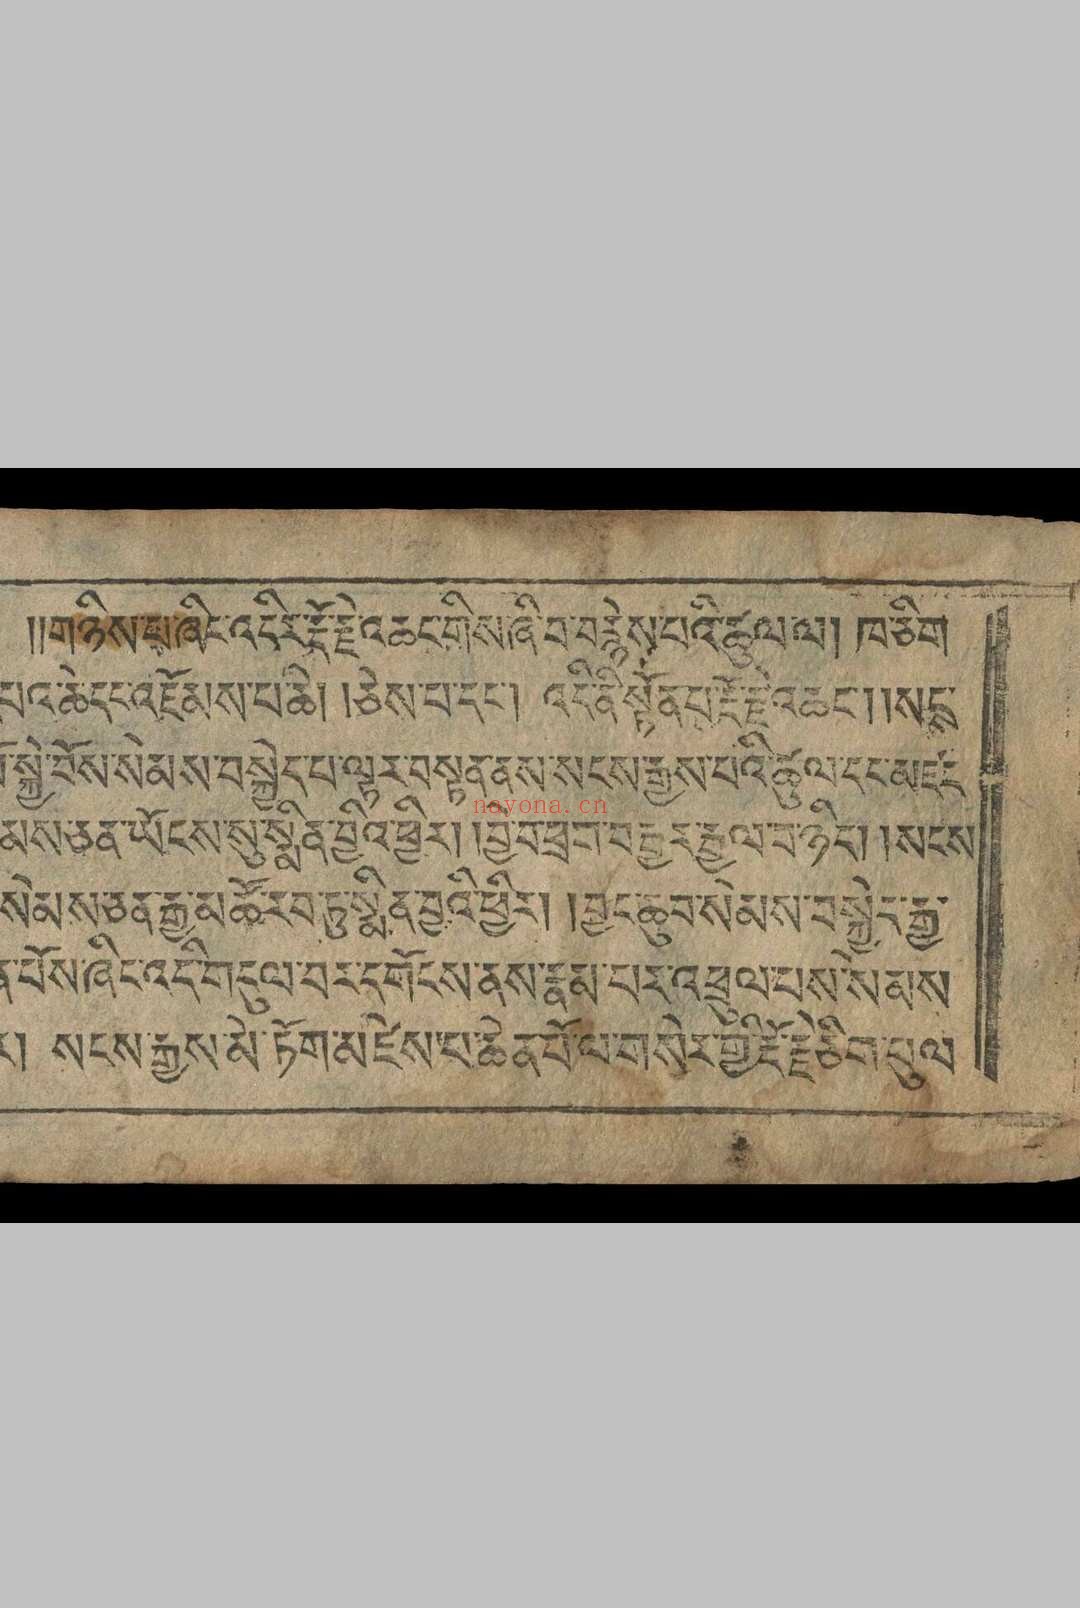 །།གཉིས་པ་ཞིང་འདིར་རྡོ་རྗེ་འཆང་གིས་ཞི་བ་བརྙེས་པའི་ཚུལ་ལ། ཁ་ཅིག
པ་འཆེ་དང་འཇོམས་པ་ཆེ། །ཅེས་པ་དང་། འདི་ནི་སྟོན་པ་རྡོ་རྗེ་འཆང་། །སངྲ
སྐྱེ་བོས་སེམས་བསྐྱེད་པ་ལྟར་བསྟན་ནས་སངས་རྒྱས་པའི་ཚུལ་དང་མཛད་
མས་ཅན་ཡོངས་སུ་སྨིན་བྱའི་ཕྱིར། །བྱ་བ་ཕྲག་བརྒྱར་རྒྱལ་བ་ཉིད། །སངས
nayona.cn
སེམས་ཅན་རྒྱ་མཚོ་རབ་ཏུ་སྨིན་བྱའི་ཕྱིར། །བྱང་ཆུབ་སེམས་བསྐྱེད་རྒྱ་
ན་པོས་ཞིང་འདི་གདུལ་བར་དགོངས་ནས་རྣམ་པར་འཕྲུལ་པས་སེམས
ར། སངས་རྒྱས་མེ་ཏོག་མཛེས་པ་ཆེན་པོ་ལ་གསེར་གྱི་རྡོ་རྗེ་ཅིག་ཕུལ